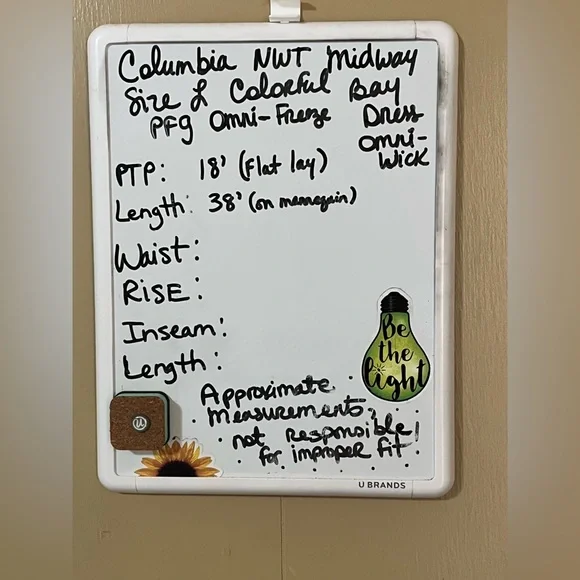 Columbia NWT Midway
Size L Colorful Bay
PFG Omni-Freeze Dress
Omni-
Wick
PTP: 18' (Flat lay)
Length: 38' (on mannequin)
Waist:
RISE:
Inseam:
Length:
Be
the
light
Approximate
Measurements,
not Responsible
for improper Fit
U BRANDS